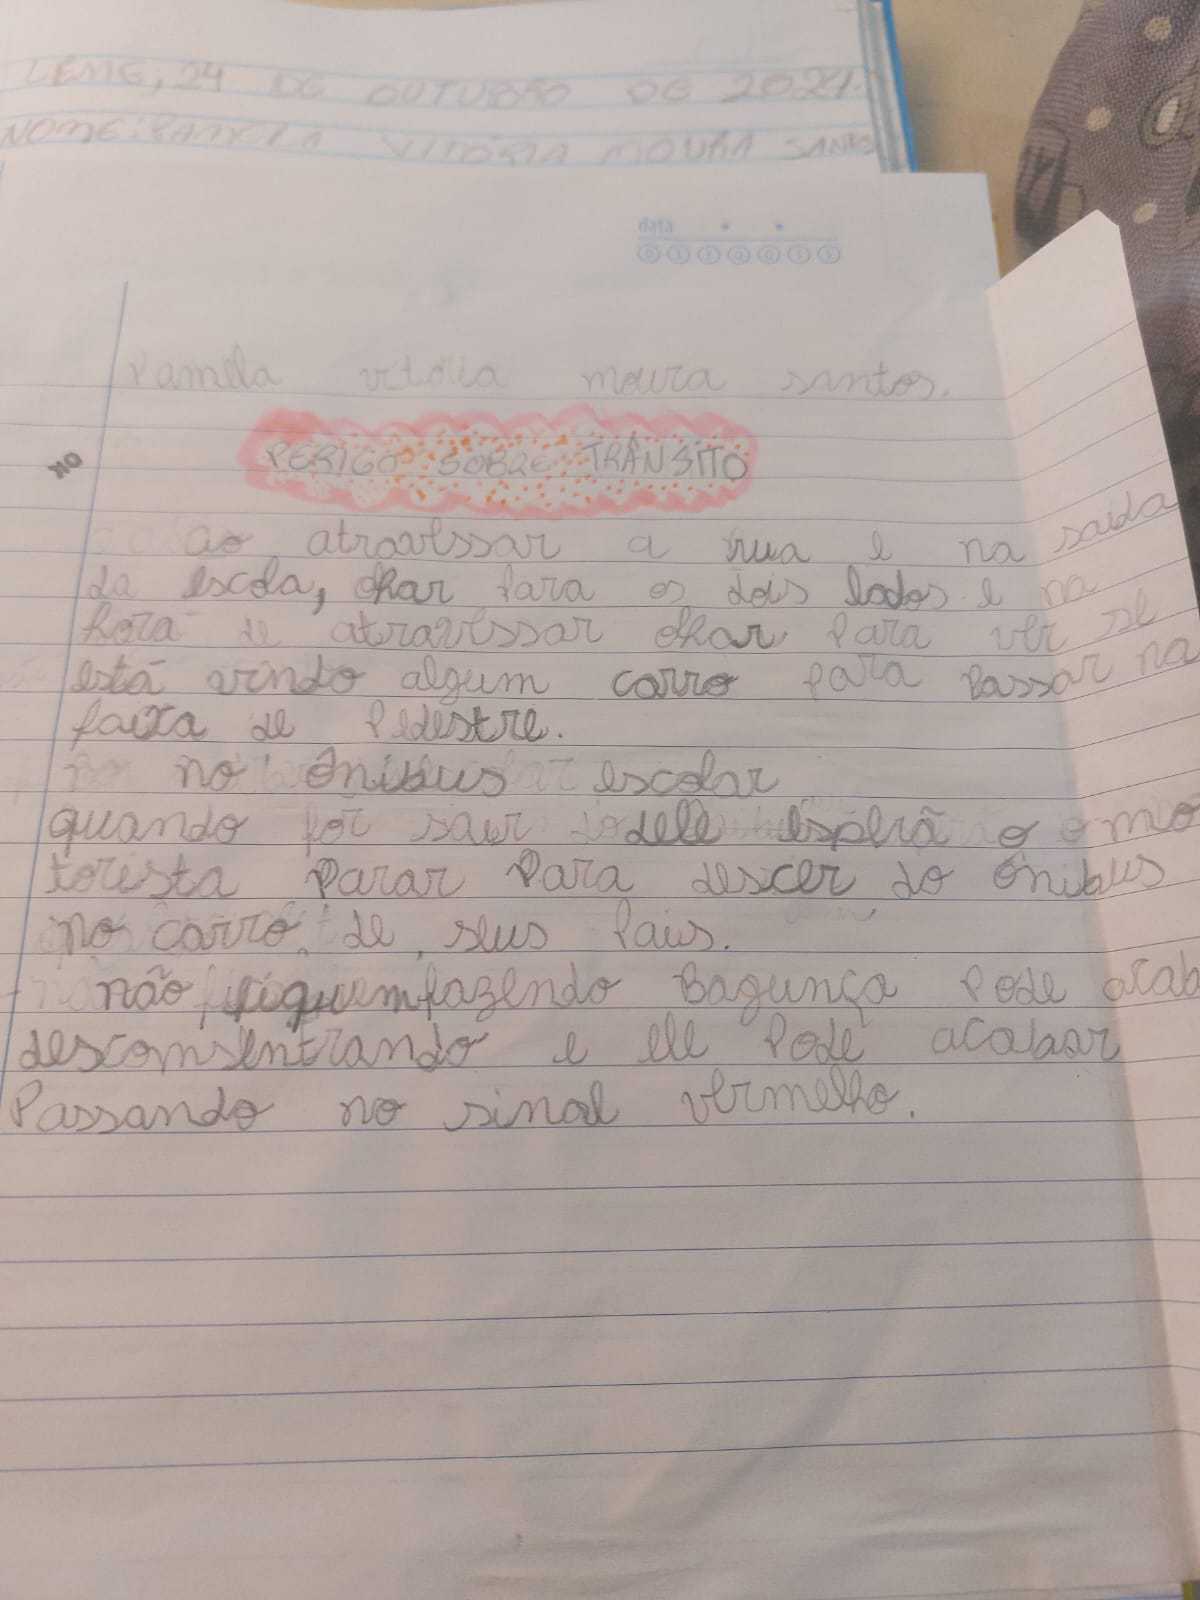 LEME, 24 DE OUTUBRO DE 2024.
NOME: PAMELA VITÓRIA MOURA SANTOS
data
Pamela vitória moura santos.
PERIGO SOBRE TRÂNSITO
ao atravessar a rua e na saída
da escola, olhar para os dois lados e na
hora de atravessar olhar para ver se
está vindo algum carro para passar na
faixa de Pedestre.
no ônibus escolar
quando for sair dele esperã o mo
torista Parar Para descer do ônibus
no carro de seus Pais.
não fiquem fazendo Bagunça Pode acab
descomsentrando e ele Pode acabar
Passando no sinal vermelho.